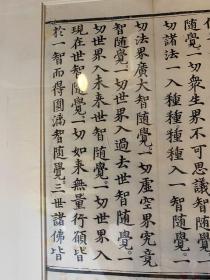 隨覺一切衆生界不可思議智隨覺一
切諸法一入種種種種入一智隨覺一
切法界廣大智隨覺一切虛空界究竟
智隨覺一切世界入過去世智隨覺一
切世界入未來世智隨覺一切世界入
現在世智隨覺一切如來無量行願皆
於一智而得圓滿智隨覺三世諸佛皆